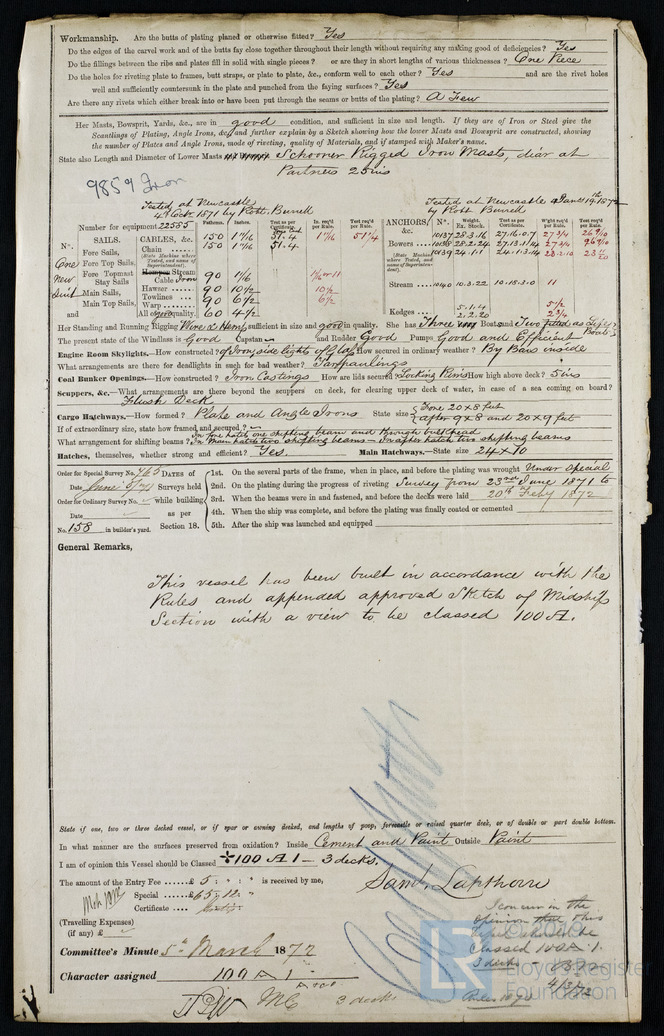 Workmanship. Are the butts of plating planed or otherwise fitted? Yes
Do the edges of the carvel work and of the butts fay close together throughout their length without requiring any making good of deficiencies? Yes
Do the fillings between the ribs and plates fill in solid with single pieces? or are they in short lengths of various thicknesses? One Piece
Do the holes for riveting plate to frames, butt straps, or plate to plate, &c., conform well to each other? Yes and are the rivet holes
well and sufficiently countersunk in the plate and punched from the faying surfaces? Yes
Are there any rivets which either break into or have been put through the seams or butts of the plating? A Few
Her Masts, Bowsprit, Yards, &c., are in good condition, and sufficient in size and length. If they are of Iron or Steel give the
Scantlings of Plating, Angle Irons, &c., and further explain by a Sketch showing how the lower Masts and Bowsprit are constructed, showing
the number of Plates and Angle Irons, mode of riveting, quality of Materials, and if stamped with Maker's name.
State also Length and Diameter of Lower Masts Schooner Rigged Iron Masts, diar at
Partners 25 ins
9859 Iron
Tested at Newcastle
4th Octr. 1871 by Robt. Burrell
Tested at Newcastle
by Robt Burrell
Number for equipment 22555 Fathoms. Inches. Test as per Certificate. ANCHORS, &c. No. Weight. Ex. Stock. Test as per Certificate.
No. SAILS. CABLES, &c. 150 1 11/16 51.4 1 11/16 51 1/4
Fore Sails, Chain 150 1 11/16 51.4 Bowers
One Fore Top Sails,
New Fore Topmast Stay Sails Stream Cable Iron 90 1
Suit Main Sails, Hawser 90 10 1/2 10 1/2 Stream 10.3.22 10.18.3.0 11
Main Top Sails, Towlines
Warp 90 6 1/2 6 1/2 5.1.4 5 1/2
and All of good quality. 60 4 1/2 Kedges 2.2.20 2 3/4
Her Standing and Running Rigging Wire & Hemp sufficient in size and good in quality. She has Three Boats and Two fitted as Life Boats
The present state of the Windlass is Good Capstan and Rudder Good Pumps Good and Efficient
Engine Room Skylights.—How constructed? of Iron, side lights of Glass How secured in ordinary weather? By Bars inside
What arrangements are there for deadlights in such for bad weather? Tarpaulings
Coal Bunker Openings.—How constructed? Iron Castings How are lids secured? Locking Pins How high above deck? 5 ins
Scuppers, &c.—What arrangements are there beyond the scuppers on deck, for clearing upper deck of water, in case of a sea coming on board?
Flush Deck
Cargo Hatchways.—How formed? Plate and Angle Irons State size Fore 20 x 8 feet
after 9 x 8 and 20 x 9 feet
If of extraordinary size, state how framed and secured?
What arrangement for shifting beams? In fore hatch one shifting beam and through bulkhead
In Main hatch two shifting beams - In after hatch two shifting beams
Hatches, themselves, whether strong and efficient? Yes. Main Hatchways.—State size 24 x 10
Order for Special Survey No. 463 DATES of 1st. On the several parts of the frame, when in place, and before the plating was wrought Under Special
Date Surveys held 2nd. On the plating during the progress of riveting Survey from 23rd June 1871 to
Order for Ordinary Survey No. while building 3rd. When the beams were in and fastened, and before the decks were laid 20th Feby 1872
Date as per 4th. When the ship was complete, and before the plating was finally coated or cemented
No. 158 in builder's yard. Section 18. 5th. After the ship was launched and equipped
General Remarks,
This vessel has been built in accordance with the
Rules and appended approved Sketch of Midship
Section with a view to be classed 100 A.
State if one, two or three decked vessel, or if spar or awning decked, and lengths of poop, forecastle or raised quarter deck, or of double or part double bottom.
In what manner are the surfaces preserved from oxidation? Inside Cement and Paint Outside Paint
I am of opinion this Vessel should be Classed 100 A 1 - 3 decks.
The amount of the Entry Fee £ 5 : " : " is received by me,
Special £ 65 : 12 : "
Certificate
Saml. Lapthorn
(Travelling Expenses)
(if any) £
I concur in the
opinion that this
Vessel should be
classed 100 A.1.
3 decks
4/3/72
Committee's Minute 5th March 1872
Character assigned 100 A 1
3 decks
LR
Lloyd's Register
Foundation